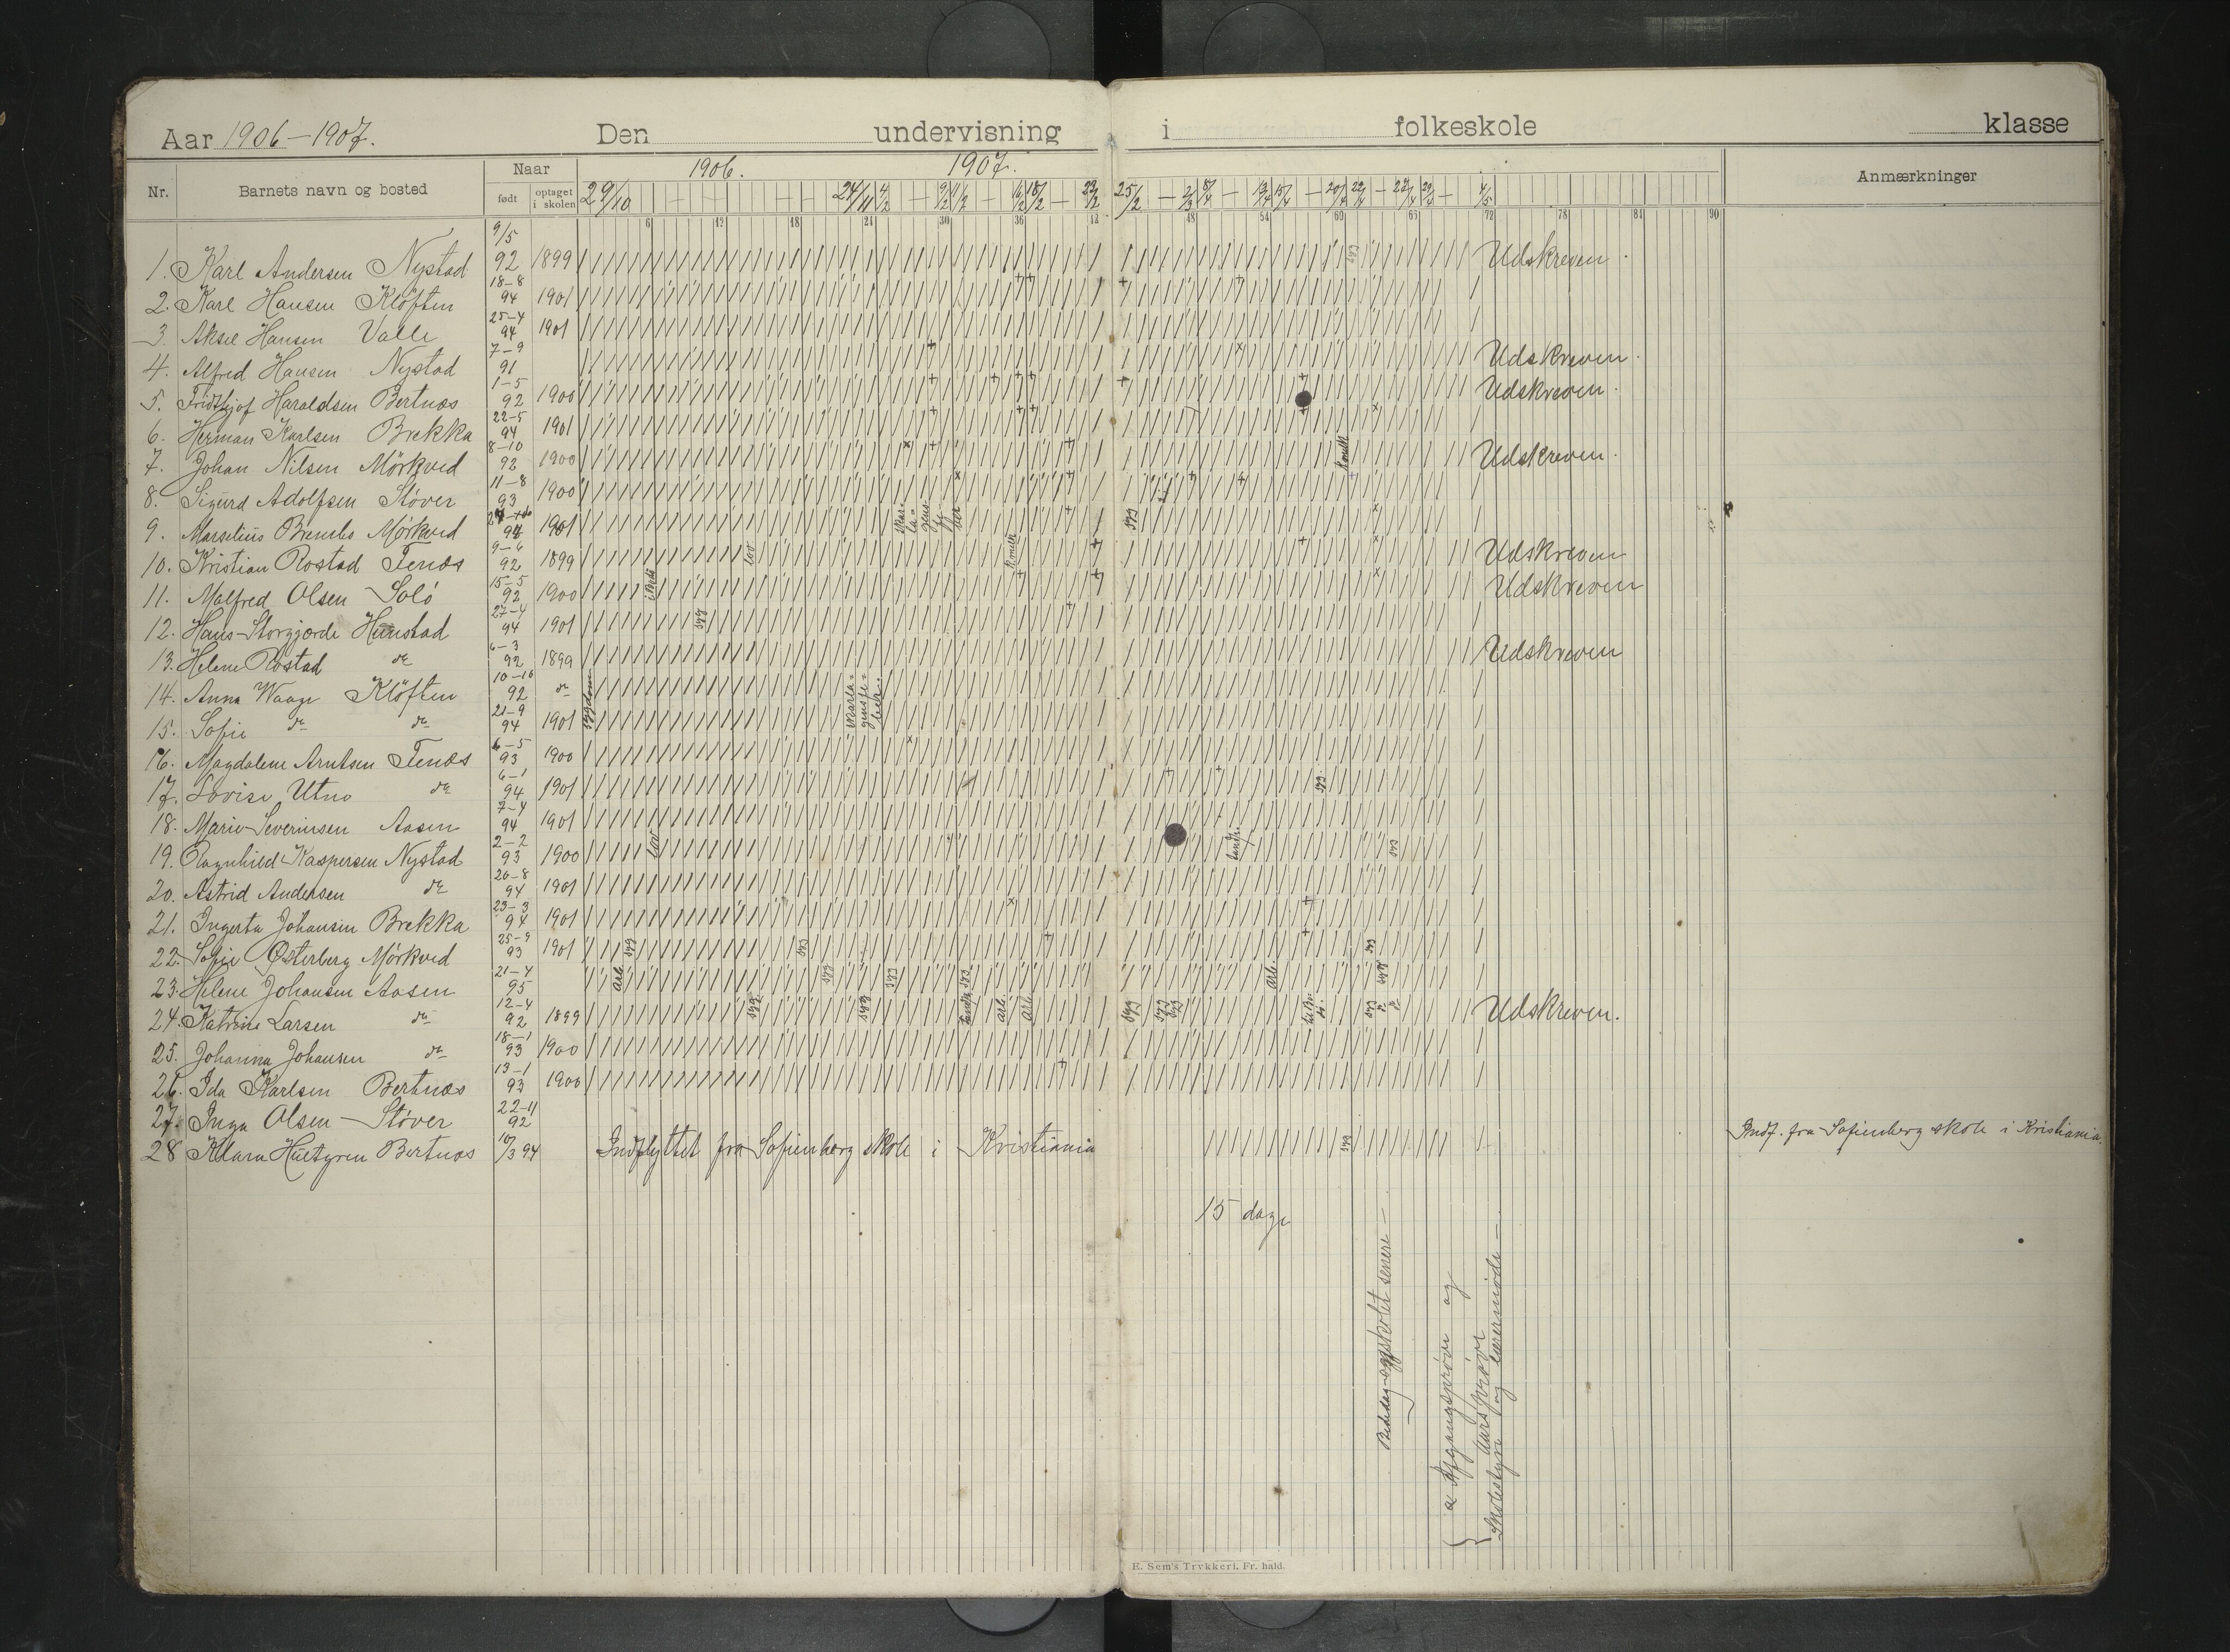 Aar 1906-1907. Den undervisning i folkeskole klasse
Nr. Barnets navn og bosted Naar 1906. 1907. Anmærkninger
født optaget i skolen 29/10 24/11 4/2 9/2 11/2 16/2 18/2 23/2 25/2 2/3 8/4 13/4 15/4 20/4 22/4 27/4 29/4 4/5
6 12 18 24 30 36 42 48 54 60 66 72 78 84 90
1. Karl Andersen Nystad 9/5 92 1899 syg Udskreven.
2. Karl Hansen Klöften 18-8 94 1901
3. Aksel Hansen Valle 25-4 94 1901
4. Alfred Hansen Nystad 7-9 91 Udskreven.
5. Fridthjof Haraldsen Bertnæs 1-5 92 1900 Udskreven.
6. Herman Karlsen Brekka 22-5 94 1901
7. Johan Nilsen Mörkved 8-10 92 1900 Udskreven.
8. Sigurd Adolfsen Støver 11-8 93 1900
9. Marselius Mörkved 1901 syg
10. Kristian Rostad Fenæs 9-6 92 1899 lov Udskreven
11. Malfred Olsen Solö 15-5 92 1900 Udskreven
12. Hans Storgjorde Hunstad 27-4 94 1901 syg
13. Helene Rostad do 6-3 92 1899 Udskreven
14. Anna Waage Klöften 10-10 92 do sygdom skarlagensfeber.
15. Sofie do do 21-9 94 1901
16. Magdalene Arntsen Fenæs 6-5 93 1900
17. Lovise Utne do 6-1 94 1901 syg
18. Marie Severinsen Aasen 7-4 94 1901
19. Ragnhild Kaspersen Nystad 2-2 93 1900 lov syg
20. Astrid Andersen do 20-8 94 1901
21. Ingerta Johansen Brekka 23-3 94 1901
22. Sofie Østerberg Mörkved 25-9 93 1901 syg syg syg
23. Helene Johansen Aasen 21-4 95 arb syg syg syg arb. syg
24. Katrine Larsen do 12-4 92 1899 syg syg arb. arb. syg syg syg syg Udskreven.
25. Johanna Johansen do 18-1 93 1900
26. Ida Karlsen Bertnæs 13-1 93 1900
27. Inga Olsen Støver 22-11 92
28 Klara Hultgren Bertnæs 10/3 94 Indflyttet fra Sofienberg skole i Kristiania syg Indf. fra Sofienberg skole i Kristiania.
15 dage
senere
Afgangsprøve og
Aarsprøve
Skolestyre og lærermøde
E. Sem's Trykkeri, Fr. hald.